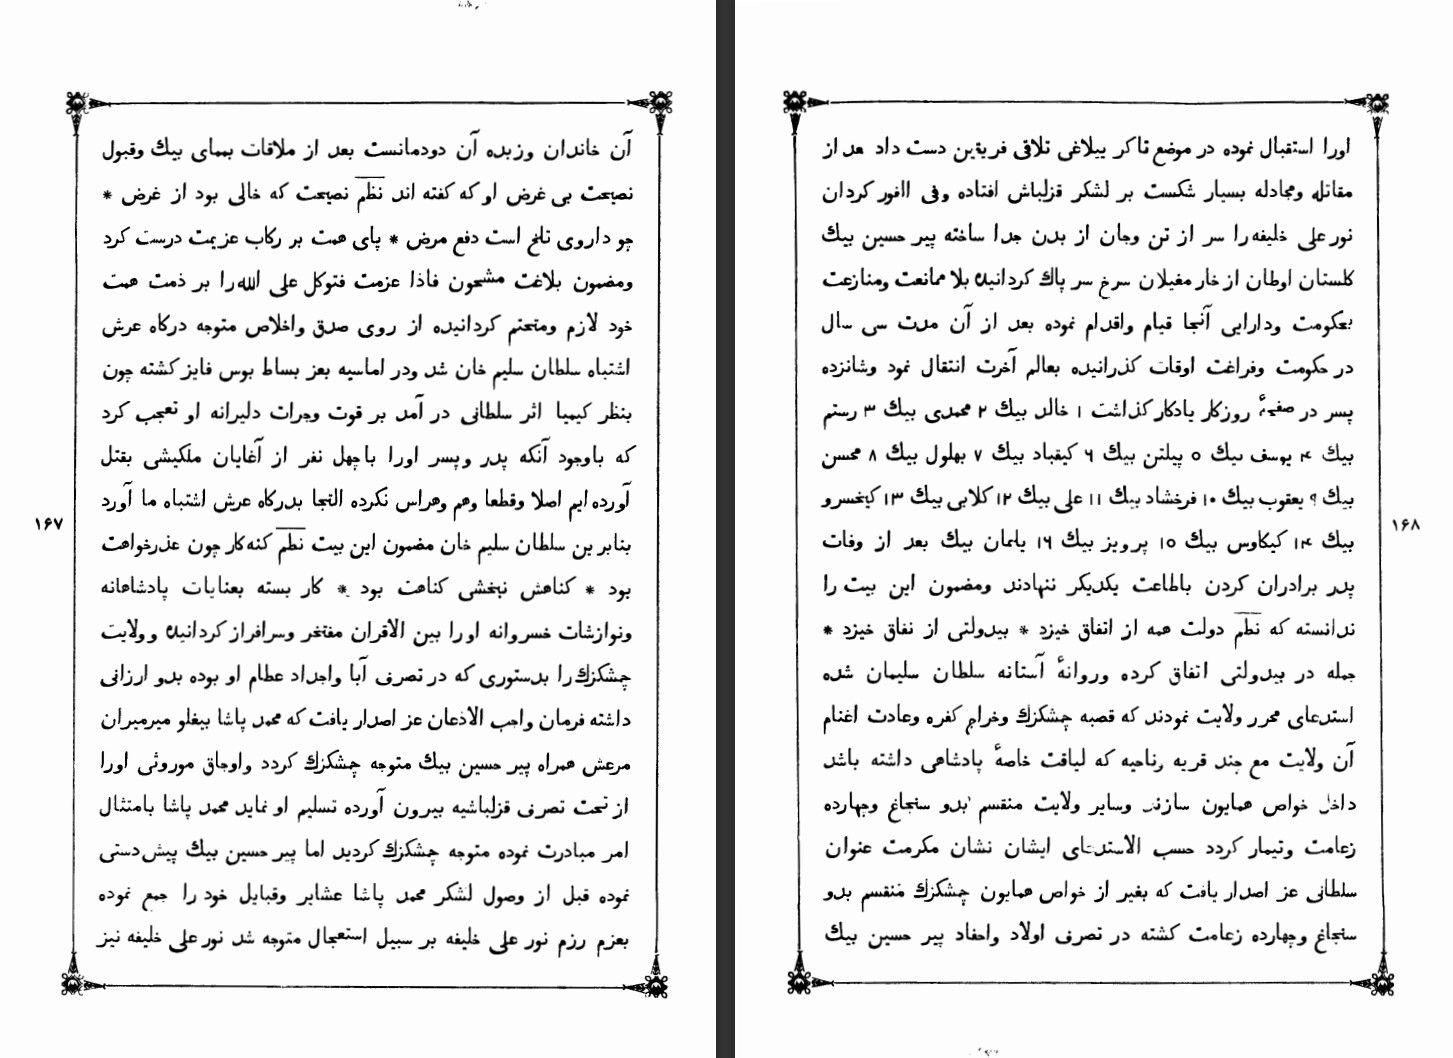 آن خاندان وزبده آن دودمانست بعد از ملاقات بممای بیك وقبول
نصیحت بی غرض او که کفته اند نظم نصیحت که خالی بود از غرض *
چو داروی تلخ است دفع مرض * پای همت بر رکاب عزیمت درست کرد
ومضمون بلاغت مشحون فاذا عزمت فتوکل علی الله را بر ذمت همت
خود لازم ومتحتم کردانیده از روی صدق واخلاص متوجه درکاه عرش
اشتباه سلطان سلیم خان شد ودر اماسیه بعز بساط بوس فایز کشته چون
بنظر کیمیا اثر سلطانی در آمد بر قوت وجرات دلیرانه او تعجب کرد
که باوجود آنکه پدر وپسر اورا باچهل نفر از آغایان ملکیشی بقتل
آورده ایم اصلا وقطعا وهم وهراس نکرده التجا بدرکاه عرش اشتباه ما آورد
بنابر ین سلطان سلیم خان مضمون این بیت نظم کنه کار چون عذرخواهت
بود * کناهش نبخشی کناهت بود * کار بسته بعنایات پادشاهانه
ونوازشات خسروانه او را بین الاقران مفتخر وسرافراز کردانید وولایت
چشکزك را بدستوری که در تصرف آبا واجداد عظام او بوده بدو ارزانی
داشته فرمان واجب الاذعان عز اصدار یافت که محمد پاشا بیغلو میرمیران
مرعش همراه پیر حسین بیك متوجه چشکزك کردد واوجاق موروثی اورا
از تحت تصرف قزلباشیه بیرون آورده تسلیم او نماید محمد پاشا بامتثال
امر مبادرت نموده متوجه چشکزك کردید اما پیر حسین بیك پیش دستی
نموده قبل از وصول لشکر محمد پاشا عشایر وقبایل خود را جمع نموده
بعزم رزم نور علی خلیفه بر سبیل استعجال متوجه شد نور علی خلیفه نیز
۱۶۷
اورا استقبال نموده در موضع تاکر ییلاغی تلاقی فریقین دست داد بعد از
مقاتله ومجادله بسیار شکست بر لشکر قزلباش افتاده وفی الفور کردان
نور علی خلیفه را سر از تن وجان از بدن جدا ساخته پیر حسین بیك
کلستان اوطان از خار مغیلان سرخ سر پاك کردانید بلا ممانعت ومنازعت
بحکومت ودارایی آنجا قیام واقدام نموده بعد از آن مدت سی سال
در حکومت وفراغت اوقات کذرانیده بعالم آخرت انتقال نمود وشانزده
پسر در صفحهٔ روزکار یادکار کذاشت ۱ خالد بیك ۲ محمدی بیك ۳ رستم
بیك ۴ یوسف بیك ۵ پیلتن بیك ۶ کیقباد بیك ۷ بهلول بیك ۸ محسن
بیك ۹ یعقوب بیك ۱۰ فرخشاد بیك ۱۱ علی بیك ۱۲ کلابی بیك ۱۳ کیخسرو
بیك ۱۴ کیکاوس بیك ۱۵ پرویز بیك ۱۶ یلمان بیك بعد از وفات
پدر برادران کردن باطاعت یکدیکر ننهادند ومضمون این بیت را
ندانسته که نظم دولت همه از اتفاق خیزد * بیدولتی از نفاق خیزد *
جمله در بیدولتی اتفاق کرده وروانهٔ آستانه سلطان سلیمان شده
استدعای محرر ولایت نمودند که قصبه چشکزك وخراج کفره وعادت اغنام
آن ولایت مع چند قریه وناحیه که لیاقت خاصهٔ پادشاهی داشته باشد
داخل خواص همایون سازند وسایر ولایت منقسم بدو سنجاغ وچهارده
زعامت وتیمار کردد حسب الاستدعای ایشان نشان مکرمت عنوان
سلطانی عز اصدار یافت که بغیر از خواص همایون چشکزك منقسم بدو
سنجاغ وچهارده زعامت کشته در تصرف اولاد واحفاد پیر حسین بیك
۱۶۸